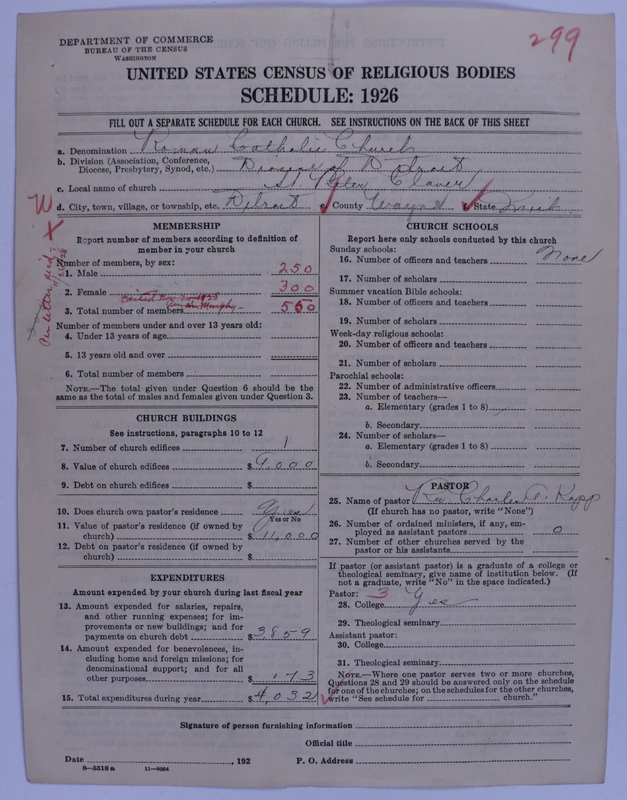 299
DEPARTMENT OF COMMERCE
BUREAU OF THE CENSUS
WASHINGTON
UNITED STATES CENSUS OF RELIGIOUS BODIES
SCHEDULE: 1926
FILL OUT A SEPARATE SCHEDULE FOR EACH CHURCH. SEE INSTRUCTIONS ON THE BACK OF THIS SHEET
a. Denomination Roman Catholic Church
b. Division (Association, Conference,
Diocese, Presbytery, Synod, etc.) Diocese of Detroit
c. Local name of church St Peter Claver
d. City, town, village, or township, etc. Detroit e. County Wayne f. State Mich
MEMBERSHIP
Report number of members according to definition of
member in your church
Number of members, by sex:
1. Male 250
2. Female 300
3. Total number of members 550
Number of members under and over 13 years old:
4. Under 13 years of age
5. 13 years old and over
6. Total number of members
NOTE.—The total given under Question 6 should be the
same as the total of males and females given under Question 3.
CHURCH BUILDINGS
See instructions, paragraphs 10 to 12
7. Number of church edifices 1
8. Value of church edifices $9,000
9. Debt on church edifices $
10. Does church own pastor's residence Yes
Yes or No
11. Value of pastor's residence (if owned by
church) $11,000
12. Debt on pastor's residence (if owned by
church) $
EXPENDITURES
Amount expended by your church during last fiscal year
13. Amount expended for salaries, repairs,
and other running expenses; for im-
provements or new buildings; and for
payments on church debt $3859
14. Amount expended for benevolences, in-
cluding home and foreign missions; for
denominational support; and for all
other purposes $173
15. Total expenditures during year $4,032
CHURCH SCHOOLS
Report here only schools conducted by this church
Sunday schools:
16. Number of officers and teachers None
17. Number of scholars
Summer vacation Bible schools:
18. Number of officers and teachers
19. Number of scholars
Week-day religious schools:
20. Number of officers and teachers
21. Number of scholars
Parochial schools:
22. Number of administrative officers
23. Number of teachers—
a. Elementary (grades 1 to 8)
b. Secondary
24. Number of scholars—
a. Elementary (grades 1 to 8)
b. Secondary
PASTOR
25. Name of pastor Rev. Charles A. Kapp
(If church has no pastor, write "None")
26. Number of ordained ministers, if any, em-
ployed as assistant pastors 0
27. Number of other churches served by the
pastor or his assistants
If pastor (or assistant pastor) is a graduate of a college or
theological seminary, give name of institution below. (If
not a graduate, write "No" in the space indicated.)
Pastor: 3
28. College Yes
29. Theological seminary
Assistant pastor:
30. College
31. Theological seminary
NOTE.—Where one pastor serves two or more churches,
Questions 28 and 29 should be answered only on the schedule
for one of the churches; on the schedules for the other churches,
write "See schedule for church."
Signature of person furnishing information
Official title
Date , 192 P. O. Address
8—5518a 11—9034